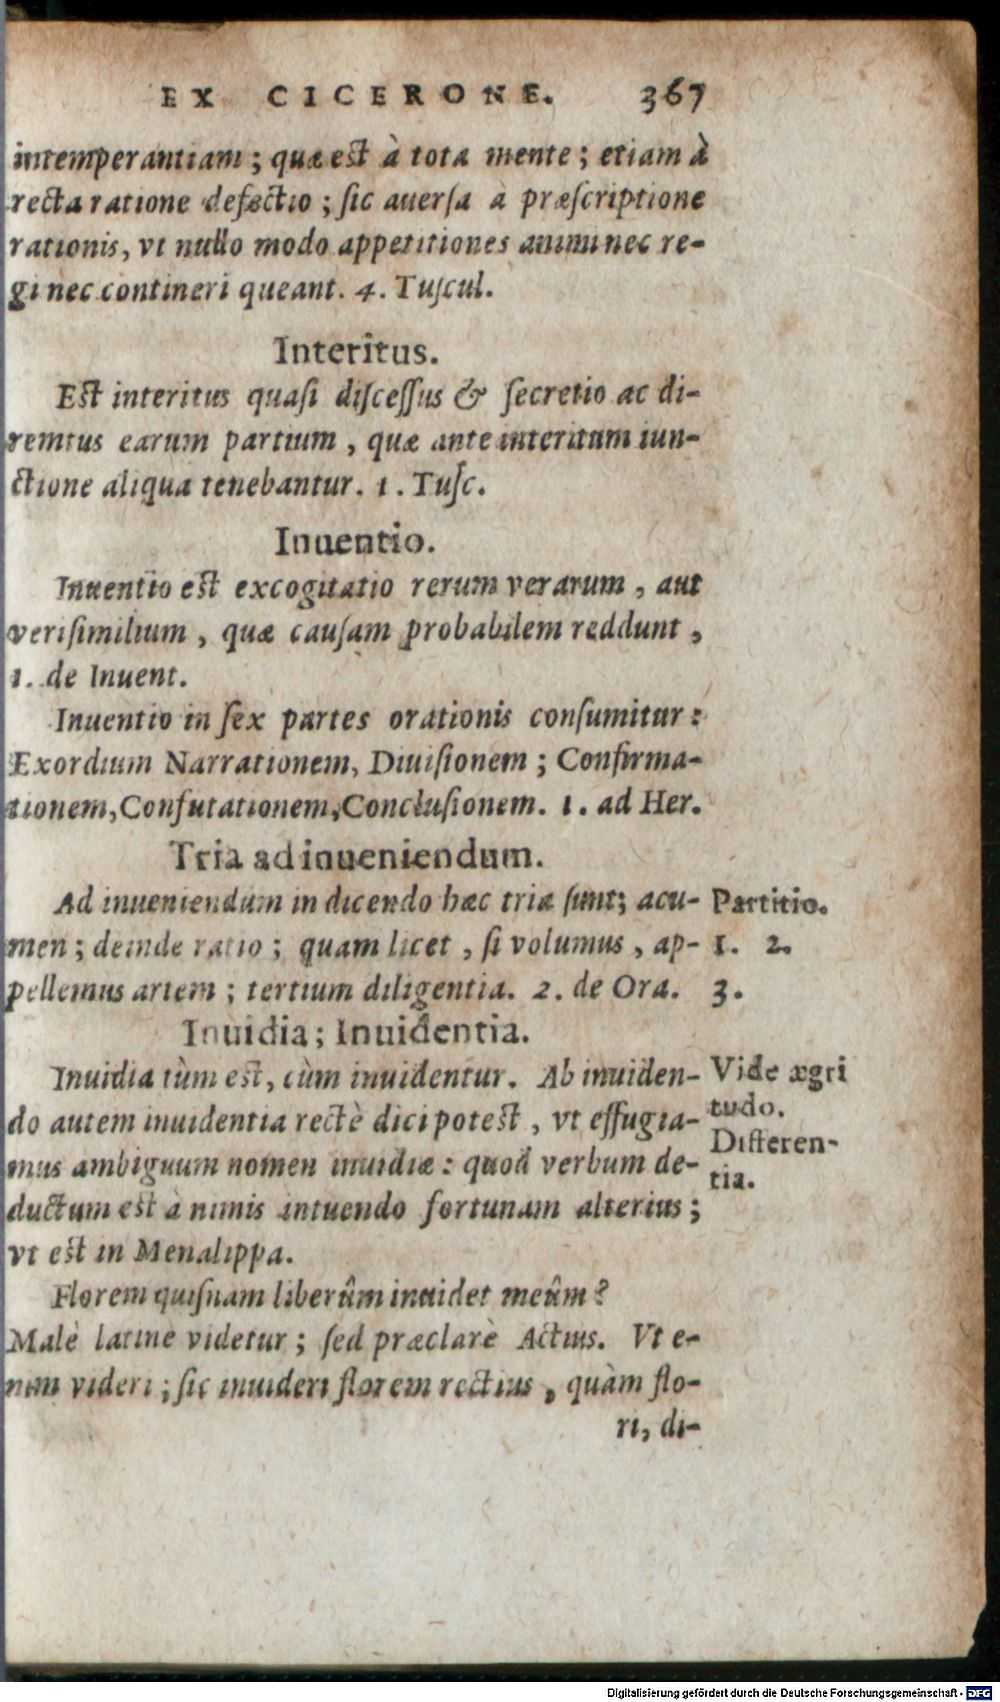 EX CICERONE. 367
intemperantiam; quæ est à tota mente; etiam à
recta ratione defectio; sic auersa a præscriptione
rationis, vt nullo modo appetitiones animi nec re-
gi nec contineri queant. 4. Tuscul.
Interitus.
Est interitus quasi discessus & secretio ac di-
remtus earum partium, quæ ante interitum iun-
ctione aliqua tenebantur. 1. Tusc.
Inuentio.
Inuentio est excogitatio rerum verarum, aut
verisimilium, quæ causam probabilem reddunt,
1. de Inuent.
Inuentio in sex partes orationis consumitur:
Exordium Narrationem, Diuisionem; Confirma-
tionem, Confutationem, Conclusionem. 1. ad Her.
Tria ad inueniendum.
Ad inueniendum in dicendo hæc tria sunt; acu- Partitio.
men; deinde ratio; quam licet, si volumus, ap- 1. 2.
pellemus artem; tertium diligentia. 2. de Ora. 3.
Inuidia; Inuidentia.
Inuidia tùm est, cùm inuidentur. Ab inuiden- Vide ægri
do autem inuidentia rectè dici potest, vt effugia- tudo.
mus ambiguum nomen inuidiæ: quod verbum de- Differen-
ductum est à nimis intuendo fortunam alterius; tia.
vt est in Menalippa.
Florem quisnam liberûm inuidet meûm?
Malè latine videtur; sed præclarè Actius. Vt e-
nim videri; sic inuideri florem rectius, quàm flo-
ri, di-
Digitalisierung gefördert durch die Deutsche Forschungsgemeinschaft - DFG